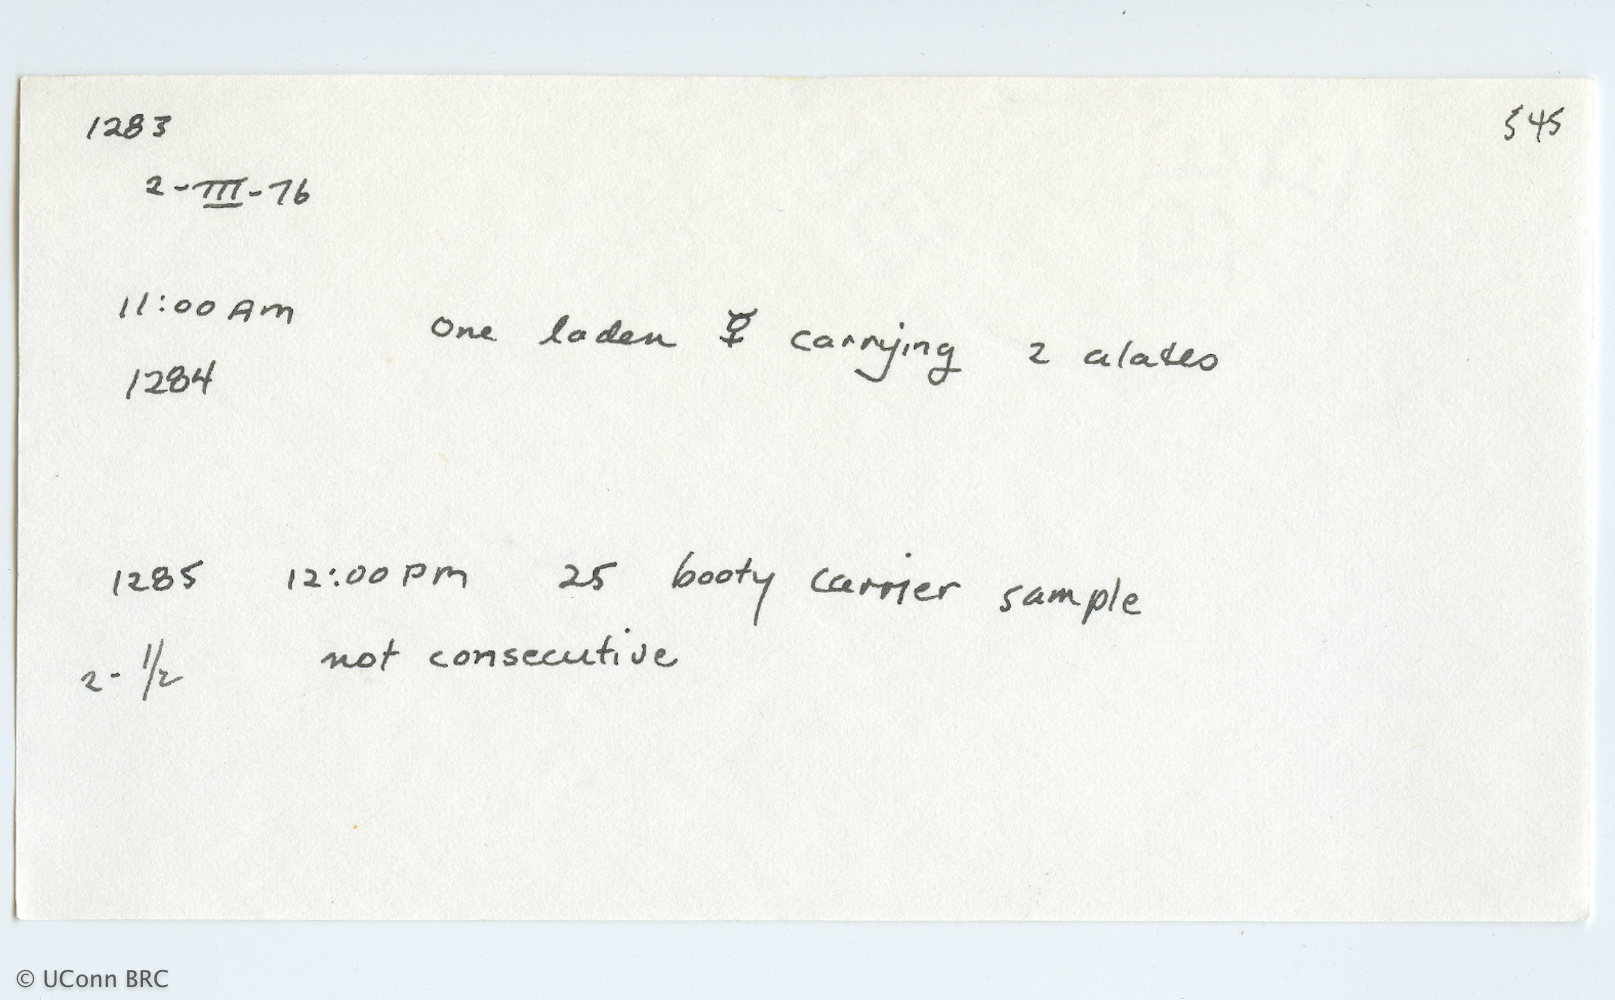 1283
545
2-III-76
11:00 Am
One laden ☿ carrying 2 alates
1284
1285 12:00 pm 25 booty carrier sample
2-1/2 not consecutive
© UConn BRC